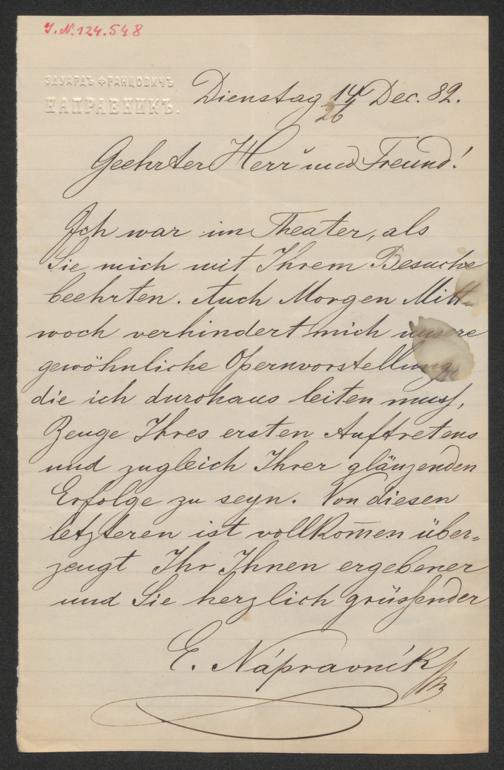 I.N.124.548
ЭДУАРДЪ ФРАНЦОВИЧЪ
НАПРАВНИКЪ.
Dienstag 14/26 Dec. 82.
Geehrter Herr und Freund!
Ich war im Theater, als
Sie mich mit Ihrem Besuche
beehrten. Auch Morgen Mitt-
woch verhindert mich unsere
gewöhnliche Opernvorstellung,
die ich durchaus leiten muß,
Zeuge Ihres ersten Auftretens
und zugleich Ihrer glänzenden
Erfolge zu seyn. Von diesen
letzteren ist vollkom̅en über-
zeugt Ihr Ihnen ergebener
und Sie herzlich grüßender
E. Nápravník